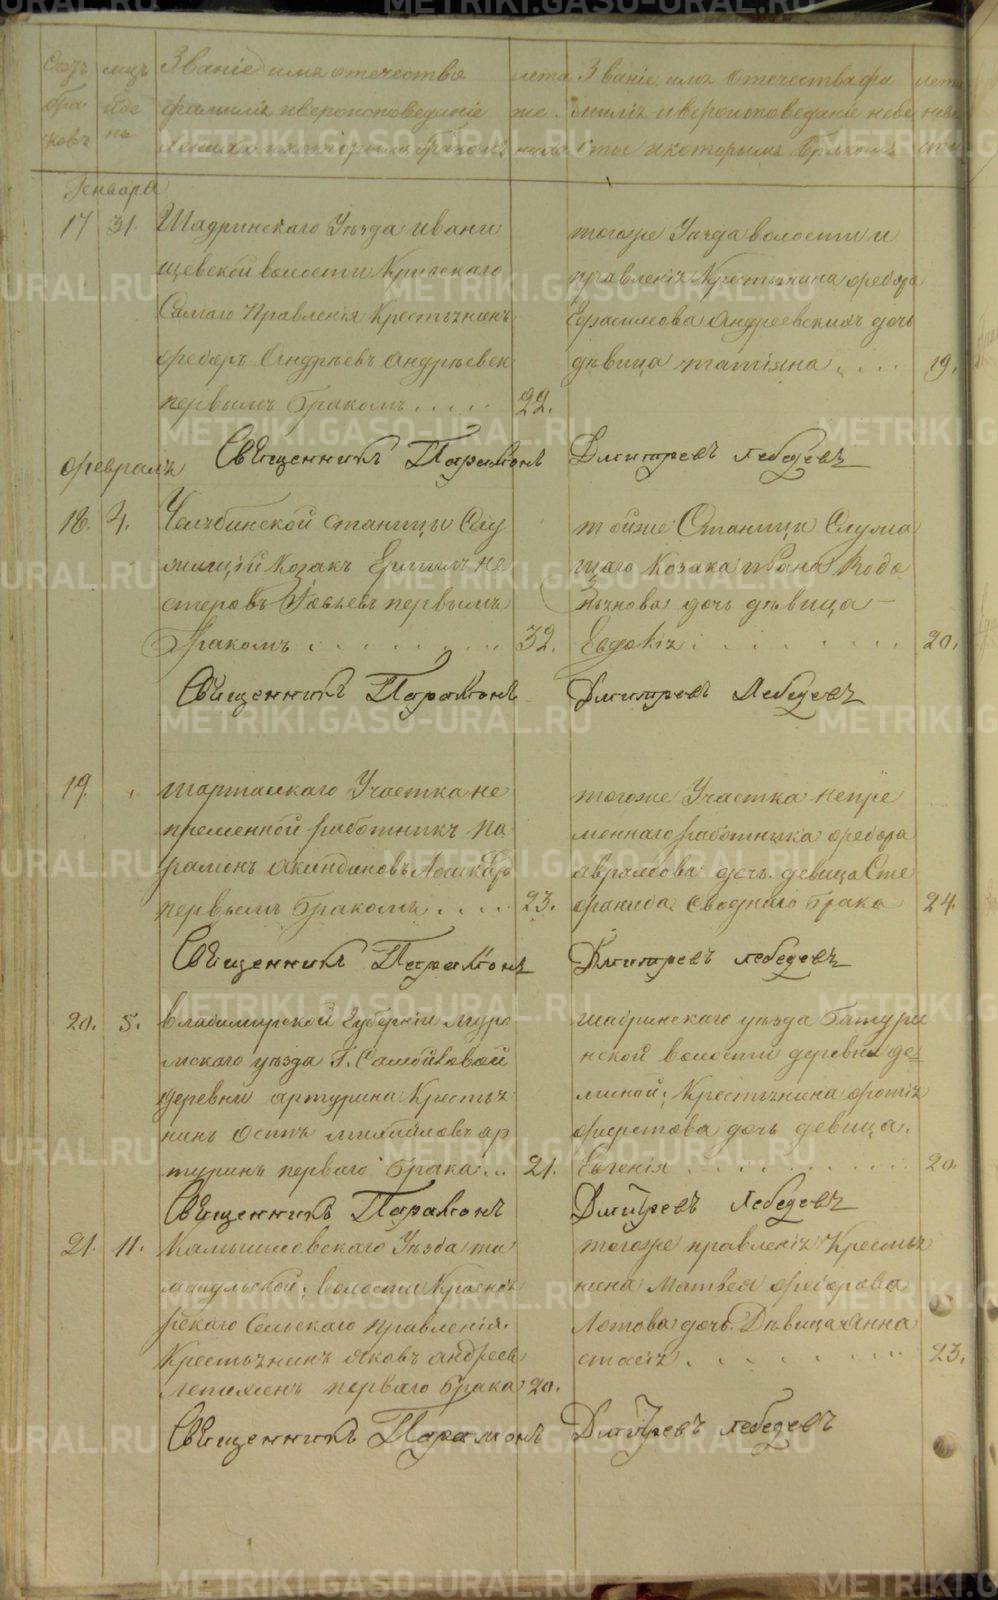 Счетъ мцъ Званіе имя отечество лета Званіе имя Отечества фа лета
бра и де фамилія ивероисповеданіе же милія ивероисповеданіе неве неве
ковъ нь жениха которымъ бракомъ ниха сты икоторымъ бракомъ сты
Генваря
17 31. Шадринскаго Уѣзда ивани
щевской волости Кривскаго
Самаго Правленія Крестьянинъ
ѳедоръ Андрѣевъ Андрѣевск
первымъ бракомъ..... 22.
тогоже Уѣзда волости и
правленія Крестьянина ѳедора
Герасимова Андреевскихъ дочь
дѣвица татіяна .... 19.
Священникъ Парамонъ Дмитревъ лебедевъ
февраль
18. 4. Челябинской Станицы Слу
жащій Козакъ Ермилъ не
стеровъ первымъ
бракомъ ........ 32.
тойже Станицы Служа
щаго Козака ивана Водо
пьянова дочь дѣвица –
Евдокія ........ 20.
Священникъ Парамонъ Дмитревъ Лебедевъ
19. , шарташскаго Участка не
пременной работникъ Па
рамонъ акиндиновъ
первымъ бракомъ .... 23.
тогоже Участка непре
меннаго работника ѳедора
аврамова дочь девица Сте
фанида Своднаго брака 24.
Священникъ Парамонъ Дмитревъ лебедевъ
20. 5. владимирской Губерніи муро
мскаго уѣзда Г. Самойловой
деревни артурина Крестья
нинъ Осипъ михайловъ ар
туринъ перваго брака... 21.
шадринскаго уѣзда батури
нской волости деревни де
миной; Крестьянина фотія
дочь девица.
Евгенія .......... 20.
Священникъ Парамонъ Дмитревъ лебедевъ
21. 11. Камышловскаго Уѣзда та
макульской; волости Красноя
рскаго Сельскаго правленія.
Крестьянинъ яковъ андреев
перваго брака 20.
тогоже правленія Крестья
нина Матвея ѳедорова
дочь. Дѣвица Анна
стасія ........ 23.
Священникъ Парамонъ Дмитревъ лебедевъ
METRIKI.GASO-URAL.RU